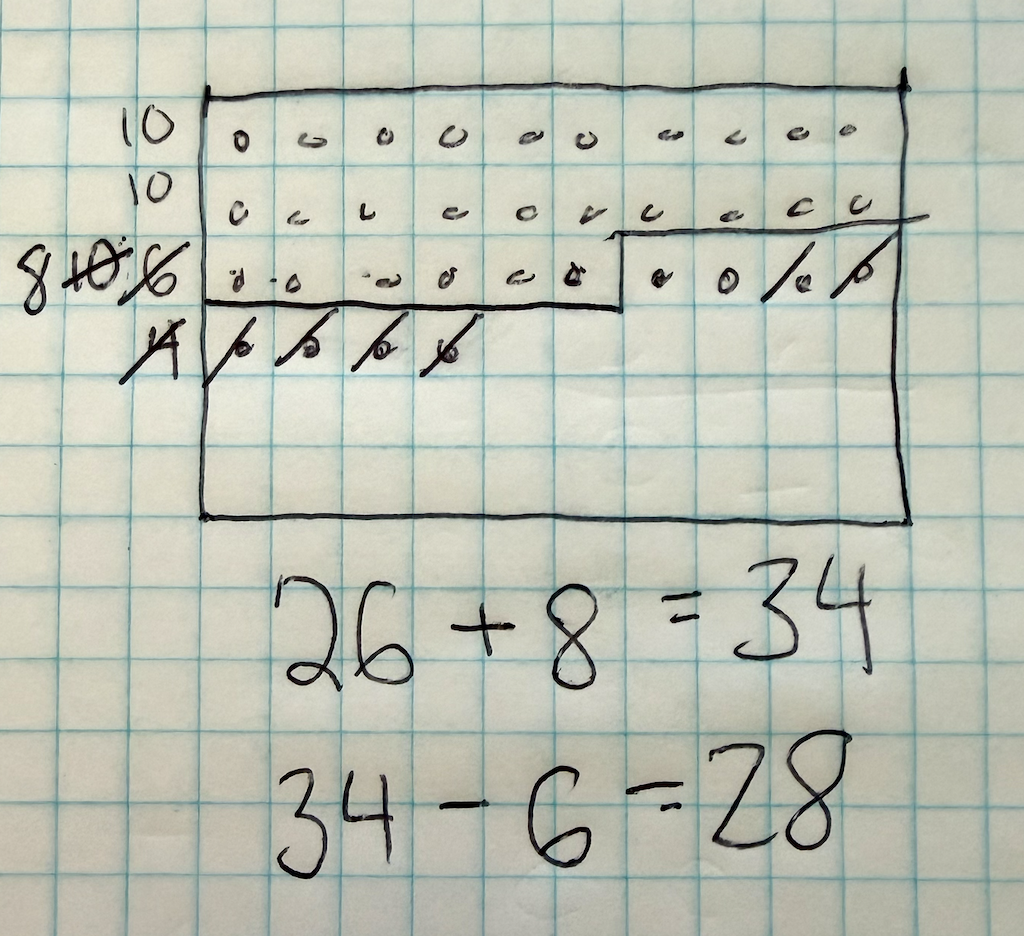 10
10
8 10 6
4
26 + 8 = 34
34 - 6 = 28